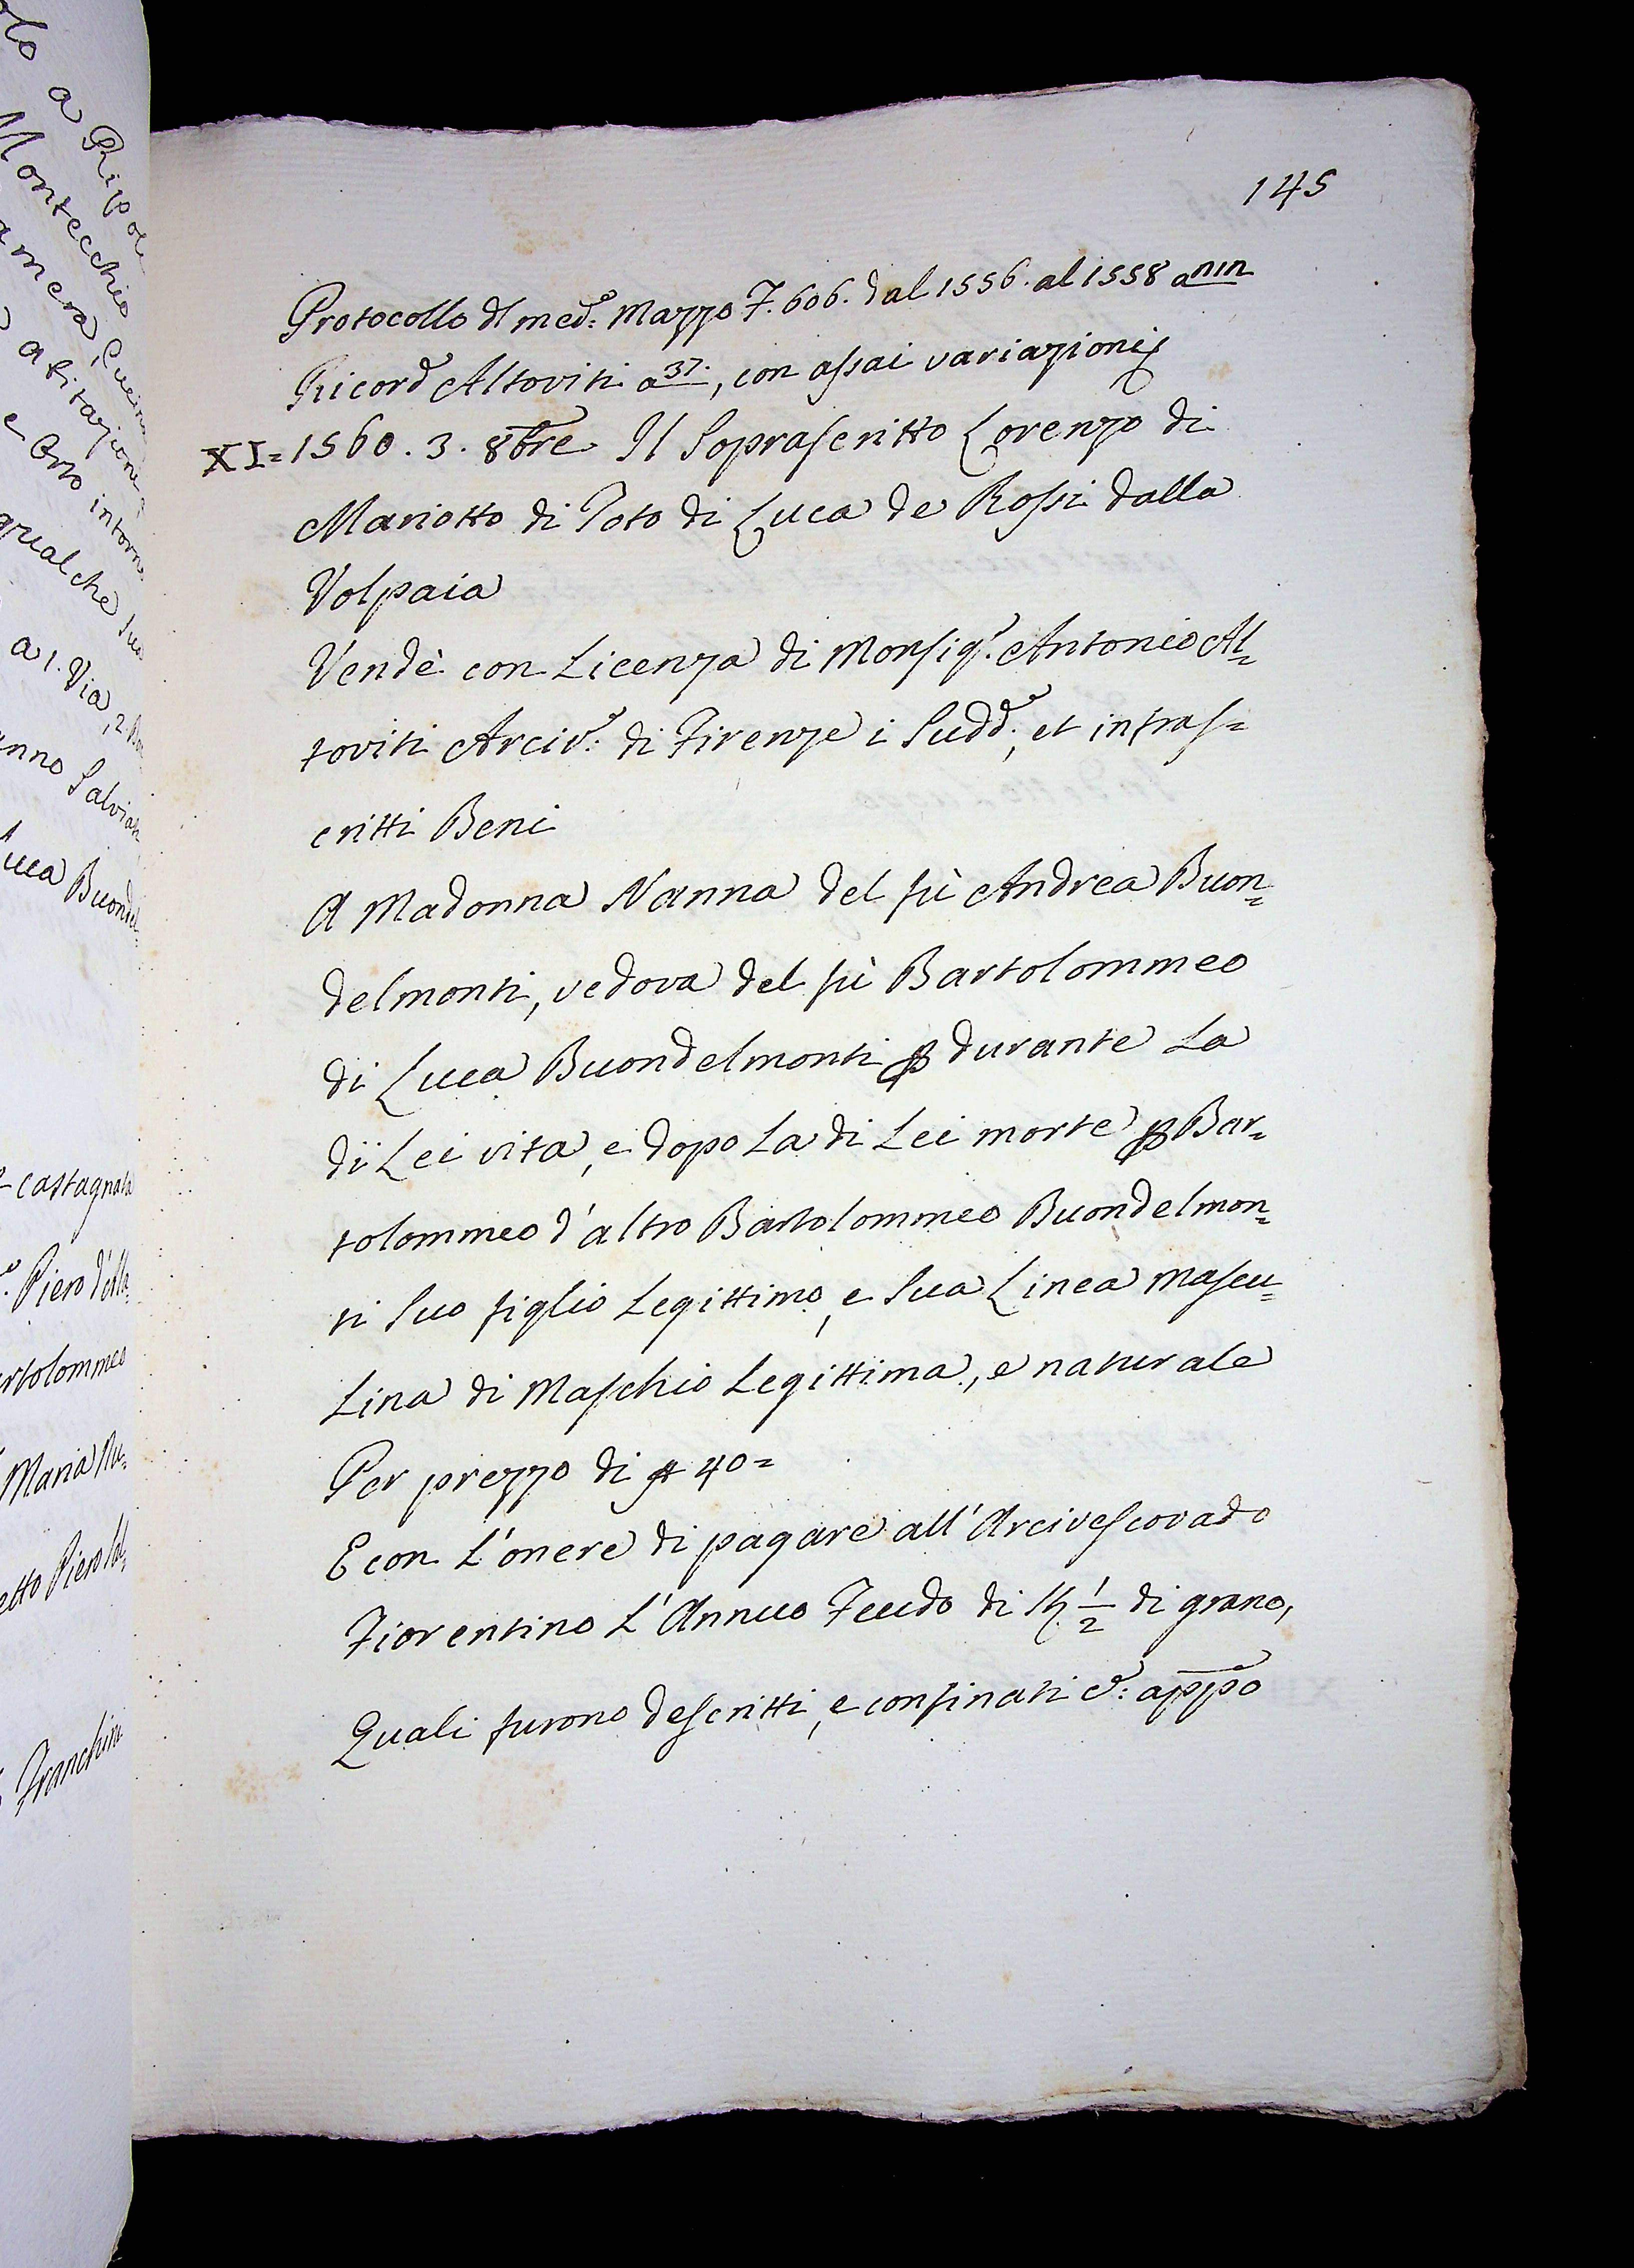 145
Protocollo dl med:º Mazzo F. 606. dal 1556. al 1558 a nin
Ricord Altoviti a 37., con assai variazioni
XI= 1560. 3. 8bre Il Soprascritto Lorenzo di
Mariotto di Toto di Luca de Rossi dalla
Volpaia
Vendè con Licenza di Monsig.r Antonio Al=
toviti Arciv:º di Firenze i Sudd:i, et infras=
critti Beni
A Madonna Nanna del fù Andrea Buon=
delmonti, vedova del fù Bartolommeo
di Luca Buondelmonti ꝑ durante La
di Lei vita, e dopo La di Lei morte ꝑ Bar=
tolommeo d'altro Bartolommeo Buondelmon=
ti Suo figlio Legittimo, e Sua Linea Mascu=
Lina di Maschio Legittima, e naturale
Per prezzo di 40=
E con L'onere di pagare all'Arcivescovado
Fiorentino L'Annuo Feudo di 1/2 di grano,
Quali furono descritti, e confinati c.: appo
a Ripoli
Montecchio
abitazione
e Orto intorno
qualche
a 1. Via, 2.
Salviati
Luca Buondel=
castagnata
Piero d'
Bartolommeo
Maria
Piero
Franchini